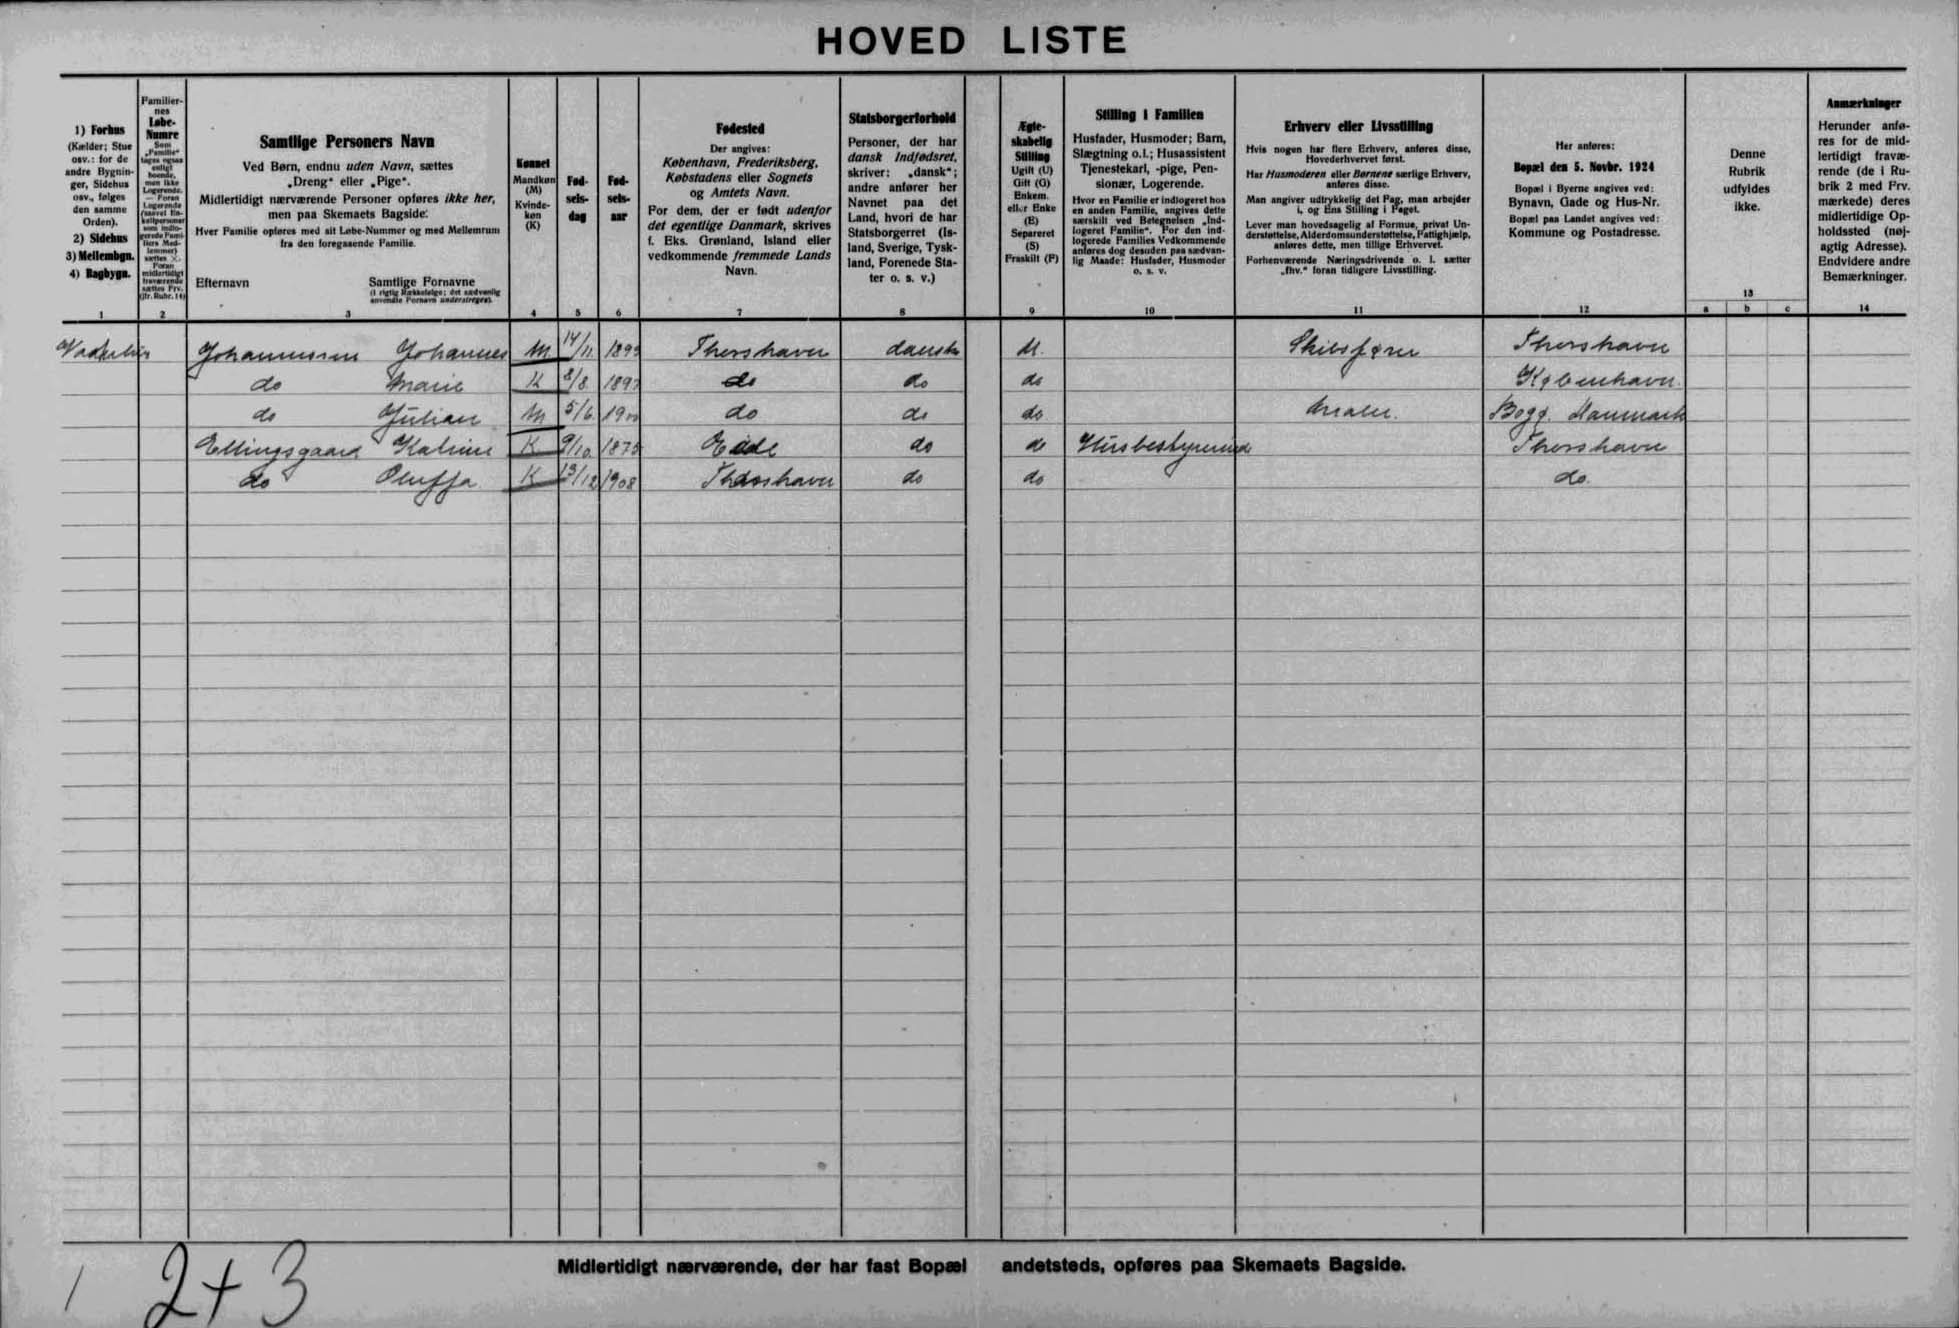 HOVED LISTE
1) Forhus
(Kælder; Stue
osv.: for de
andre Bygnin-
ger, Sidehus
osv., følges
den samme
Orden).
2) Sidehus
3) Mellembgn.
4) Bagbygn.
1
Familier-
nes
Løbe-
Numre
Som
„Familie"
tages ogsaa
enligt
boende,
men ikke
Logerende.
— Foran
Logerende
(saavel En-
keltpersoner
som indlo-
gerede Fami-
liers Med-
lemmer)
sættes ×.
Foran
midlertidigt
fraværende
sættes Frv.
(jfr. Rubr. 14)
2
Samtlige Personers Navn
Ved Børn, endnu uden Navn, sættes
„Dreng" eller „Pige".
Midlertidigt nærværende Personer opføres ikke her,
men paa Skemaets Bagside.
Hver Familie opføres med sit Løbe-Nummer og med Mellemrum
fra den foregaaende Familie.
Efternavn Samtlige Fornavne
(i rigtig Rækkefølge; det sædvanlig
anvendte Fornavn understreges).
3
Kønnet
Mandkøn
(M)
Kvinde-
køn
(K)
4
Fød-
sels-
dag
5
Fød-
sels-
aar
6
Fødested
Der angives:
København, Frederiksberg,
Købstadens eller Sognets
og Amtets Navn.
For dem, der er født udenfor
det egentlige Danmark, skrives
f. Eks. Grønland, Island eller
vedkommende fremmede Lands
Navn.
7
Statsborgerforhold
Personer, der har
dansk Indfødsret,
skriver: „dansk";
andre anfører her
Navnet paa det
Land, hvori de har
Statsborgerret (Is-
land, Sverige, Tysk-
land, Forenede Sta-
ter o. s. v.)
8
Ægte-
skabelig
Stilling
Ugift (U)
Gift (G)
Enkem.
eller Enke
(E)
Separeret
(S)
Fraskilt (F)
9
Stilling i Familien
Husfader, Husmoder; Barn,
Slægtning o.l.; Husassistent
Tjenestekarl, -pige, Pen-
sionær, Logerende.
Hvor en Familie er indlogeret hos
en anden Familie, angives dette
særskilt ved Betegnelsen „Ind-
logeret Familie". For den ind-
logerede Families Vedkommende
anføres dog desuden paa sædvan-
lig Maade: Husfader, Husmoder
o. s. v.
10
Erhverv eller Livsstilling
Hvis nogen har flere Erhverv, anføres disse,
Hovederhvervet først.
Har Husmoderen eller Børnene særlige Erhverv,
anføres disse.
Man angiver udtrykkelig det Fag, man arbejder
i, og Ens Stilling i Faget.
Lever man hovedsagelig af Formue, privat Un-
derstøttelse, Alderdomsunderstøttelse, Fattighjælp,
anføres dette, men tillige Erhvervet.
Forhenværende Næringsdrivende o. l. sætter
„fhv." foran tidligere Livsstilling.
11
Her anføres:
Bopæl den 5. Novbr. 1924
Bopæl i Byerne angives ved:
Bynavn, Gade og Hus-Nr.
Bopæl paa Landet angives ved:
Kommune og Postadresse.
12
Denne
Rubrik
udfyldes
ikke.
13
a b c
Anmærkninger
Herunder anfø-
res for de mid-
lertidigt fravæ-
rende (de i Ru-
brik 2 med Frv.
mærkede) deres
midlertidige Op-
holdssted (nøj-
agtig Adresse).
Endvidere andre
Bemærkninger.
14
Johannesen Johannes M 14/11 Thorshavn dansk U. Skibsfører Thorshavn
do Marie K 8/8 do do do København.
do Julian M 5/6 1900 do do do Maler. Danmark
Ellingsgaard Katrine K 9/10 1875 Eide do do Husbestyrerinde Thorshavn
do Oluffa K 13/12 1908 Thorshavn do do do.
Midlertidigt nærværende, der har fast Bopæl andetsteds, opføres paa Skemaets Bagside.
1 2+3